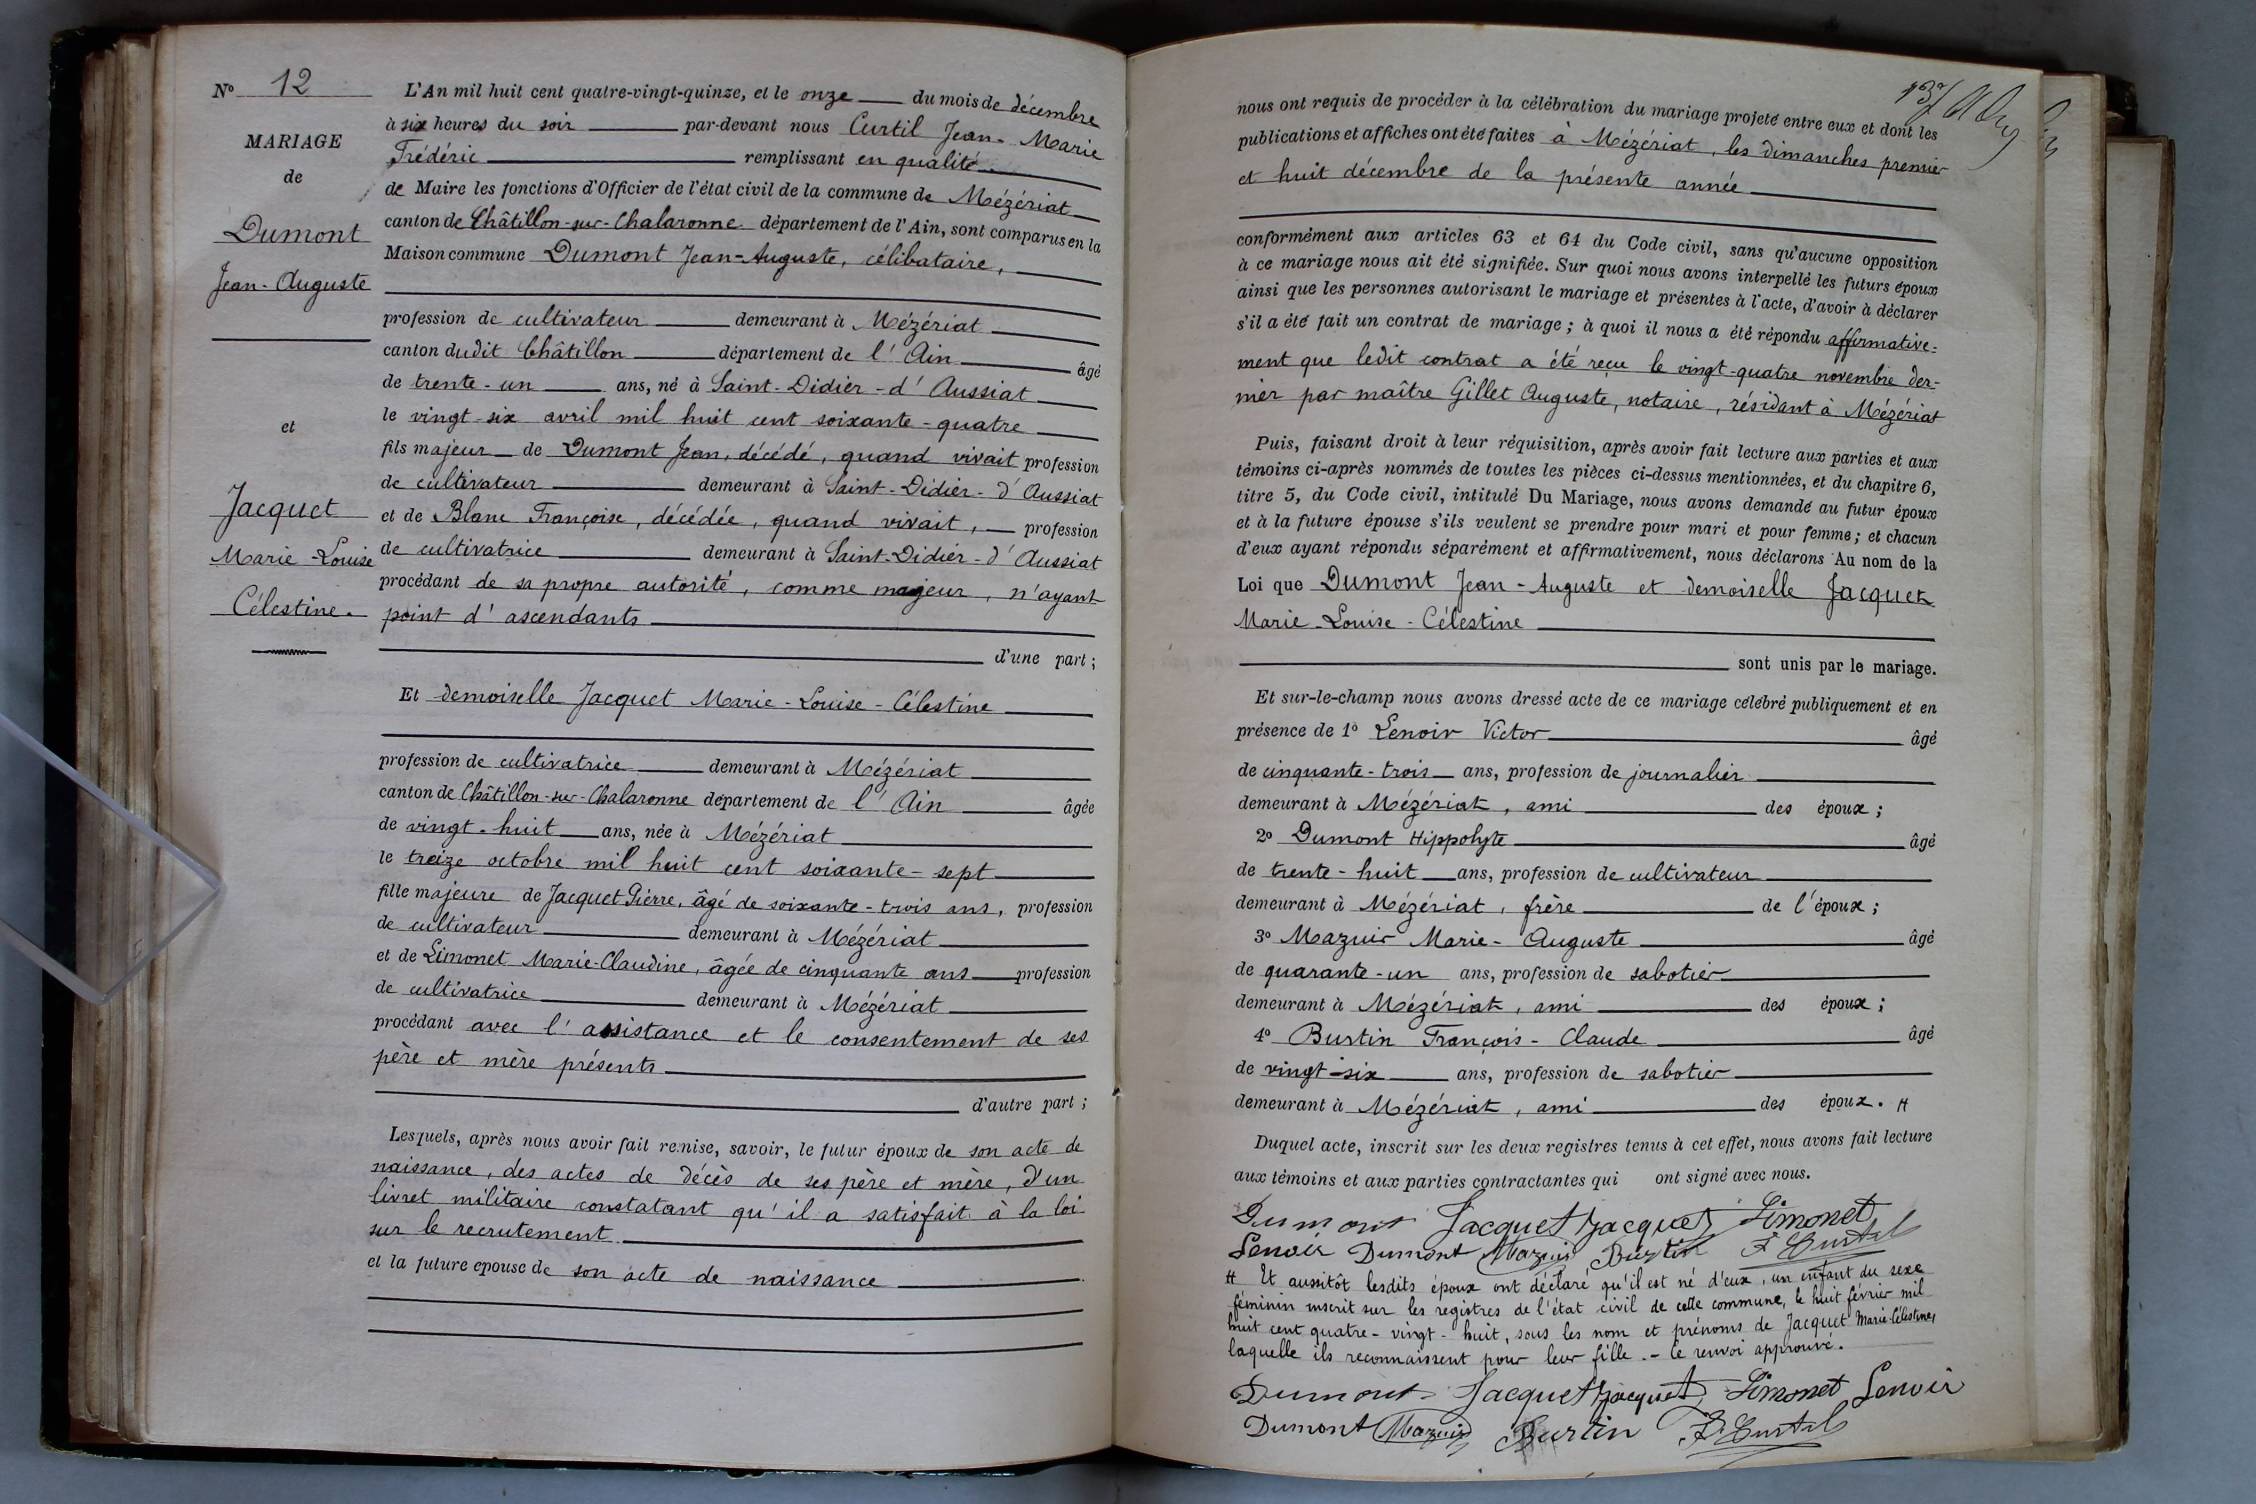 Nº 12
MARIAGE
de
Dumont
Jean-Auguste
et
Jacquet
Marie-Louise
Célestine.
L'An mil huit cent quatre-vingt-quinze, et le onze du mois de décembre
à six heures du soir par-devant nous Curtil Jean-Marie
Frédéric remplissant en qualité
de Maire les fonctions d'Officier de l'état civil de la commune de Mézériat
canton de Châtillon-sur-Chalaronne département de l'Ain, sont comparus en la
Maison commune Dumont Jean-Auguste, célibataire,
profession de cultivateur demeurant à Mézériat
canton dudit Châtillon département de l'Ain âgé
de trente-un ans, né à Saint-Didier-d'Aussiat
le vingt-six avril mil huit cent soixante-quatre
fils majeur de Dumont Jean, décédé, quand vivait profession
de cultivateur demeurant à Saint-Didier-d'Aussiat
et de Blanc Françoise, décédée, quand vivait, profession
de cultivatrice demeurant à Saint-Didier-d'Aussiat
procédant de sa propre autorité, comme majeur, n'ayant
point d'ascendants
d'une part;
Et demoiselle Jacquet Marie-Louise-Célestine
profession de cultivatrice demeurant à Mézériat
canton de Châtillon-sur-Chalaronne département de l'Ain âgée
de vingt-huit ans, née à Mézériat
le treize octobre mil huit cent soixante-sept
fille majeure de Jacquet Pierre, âgé de soixante-trois ans, profession
de cultivateur demeurant à Mézériat
et de Limonet Marie-Claudine, âgée de cinquante ans profession
de cultivatrice demeurant à Mézériat
procédant avec l'assistance et le consentement de ses
père et mère présents
d'autre part;
Lesquels, après nous avoir fait remise, savoir, le futur époux de son acte de
naissance, des actes de décès de ses père et mère, d'un
livret militaire constatant qu'il a satisfait à la loi
sur le recrutement
et la future epouse de son acte de naissance
nous ont requis de procéder à la célébration du mariage projeté entre eux et dont les
publications et affiches ont été faites à Mézériat, les dimanches premier
et huit décembre de la présente année
conformément aux articles 63 et 64 du Code civil, sans qu'aucune opposition
à ce mariage nous ait été signifiée. Sur quoi nous avons interpellé les futurs époux
ainsi que les personnes autorisant le mariage et présentes à l'acte, d'avoir à déclarer
s'il a été fait un contrat de mariage; à quoi il nous a été répondu affirmative-
ment que ledit contrat a été reçu le vingt-quatre novembre der-
nier par maître Gillet Auguste, notaire, résidant à Mézériat
Puis, faisant droit à leur réquisition, après avoir fait lecture aux parties et aux
témoins ci-après nommés de toutes les pièces ci-dessus mentionnées, et du chapitre 6,
titre 5, du Code civil, intitulé Du Mariage, nous avons demandé au futur époux
et à la future épouse s'ils veulent se prendre pour mari et pour femme; et chacun
d'eux ayant répondu séparément et affirmativement, nous déclarons Au nom de la
Loi que Dumont Jean-Auguste et demoiselle Jacquet
Marie-Louise-Célestine
sont unis par le mariage.
Et sur-le-champ nous avons dressé acte de ce mariage célébré publiquement et en
présence de 1º Lenoir Victor âgé
de cinquante-trois ans, profession de journalier
demeurant à Mézériat, ami des époux;
2º Dumont Hippolyte âgé
de trente-huit ans, profession de cultivateur
demeurant à Mézériat, frère de l'époux;
3º Mazuir Marie-Auguste âgé
de quarante-un ans, profession de sabotier
demeurant à Mézériat, ami des époux;
4º Burtin François-Claude âgé
de vingt-six ans, profession de sabotier
demeurant à Mézériat, ami des époux. H
Duquel acte, inscrit sur les deux registres tenus à cet effet, nous avons fait lecture
aux témoins et aux parties contractantes qui ont signé avec nous.
Dumont Jacquet Jacquet Limonet
Lenoir Dumont Mazuir Burtin F Curtil
H Et aussitôt lesdits époux ont déclaré qu'il est né d'eux, un enfant du sexe
féminin inscrit sur les registres de l'état civil de cette commune, le huit février mil
huit cent quatre-vingt-huit, sous les nom et prénoms de Jacquet Marie-Célestine,
laquelle ils reconnaissent pour leur fille. - Ce renvoi approuvé.
Dumont Jacquet Jacquet Limonet Lenoir
Dumont Mazuir Burtin F Curtil